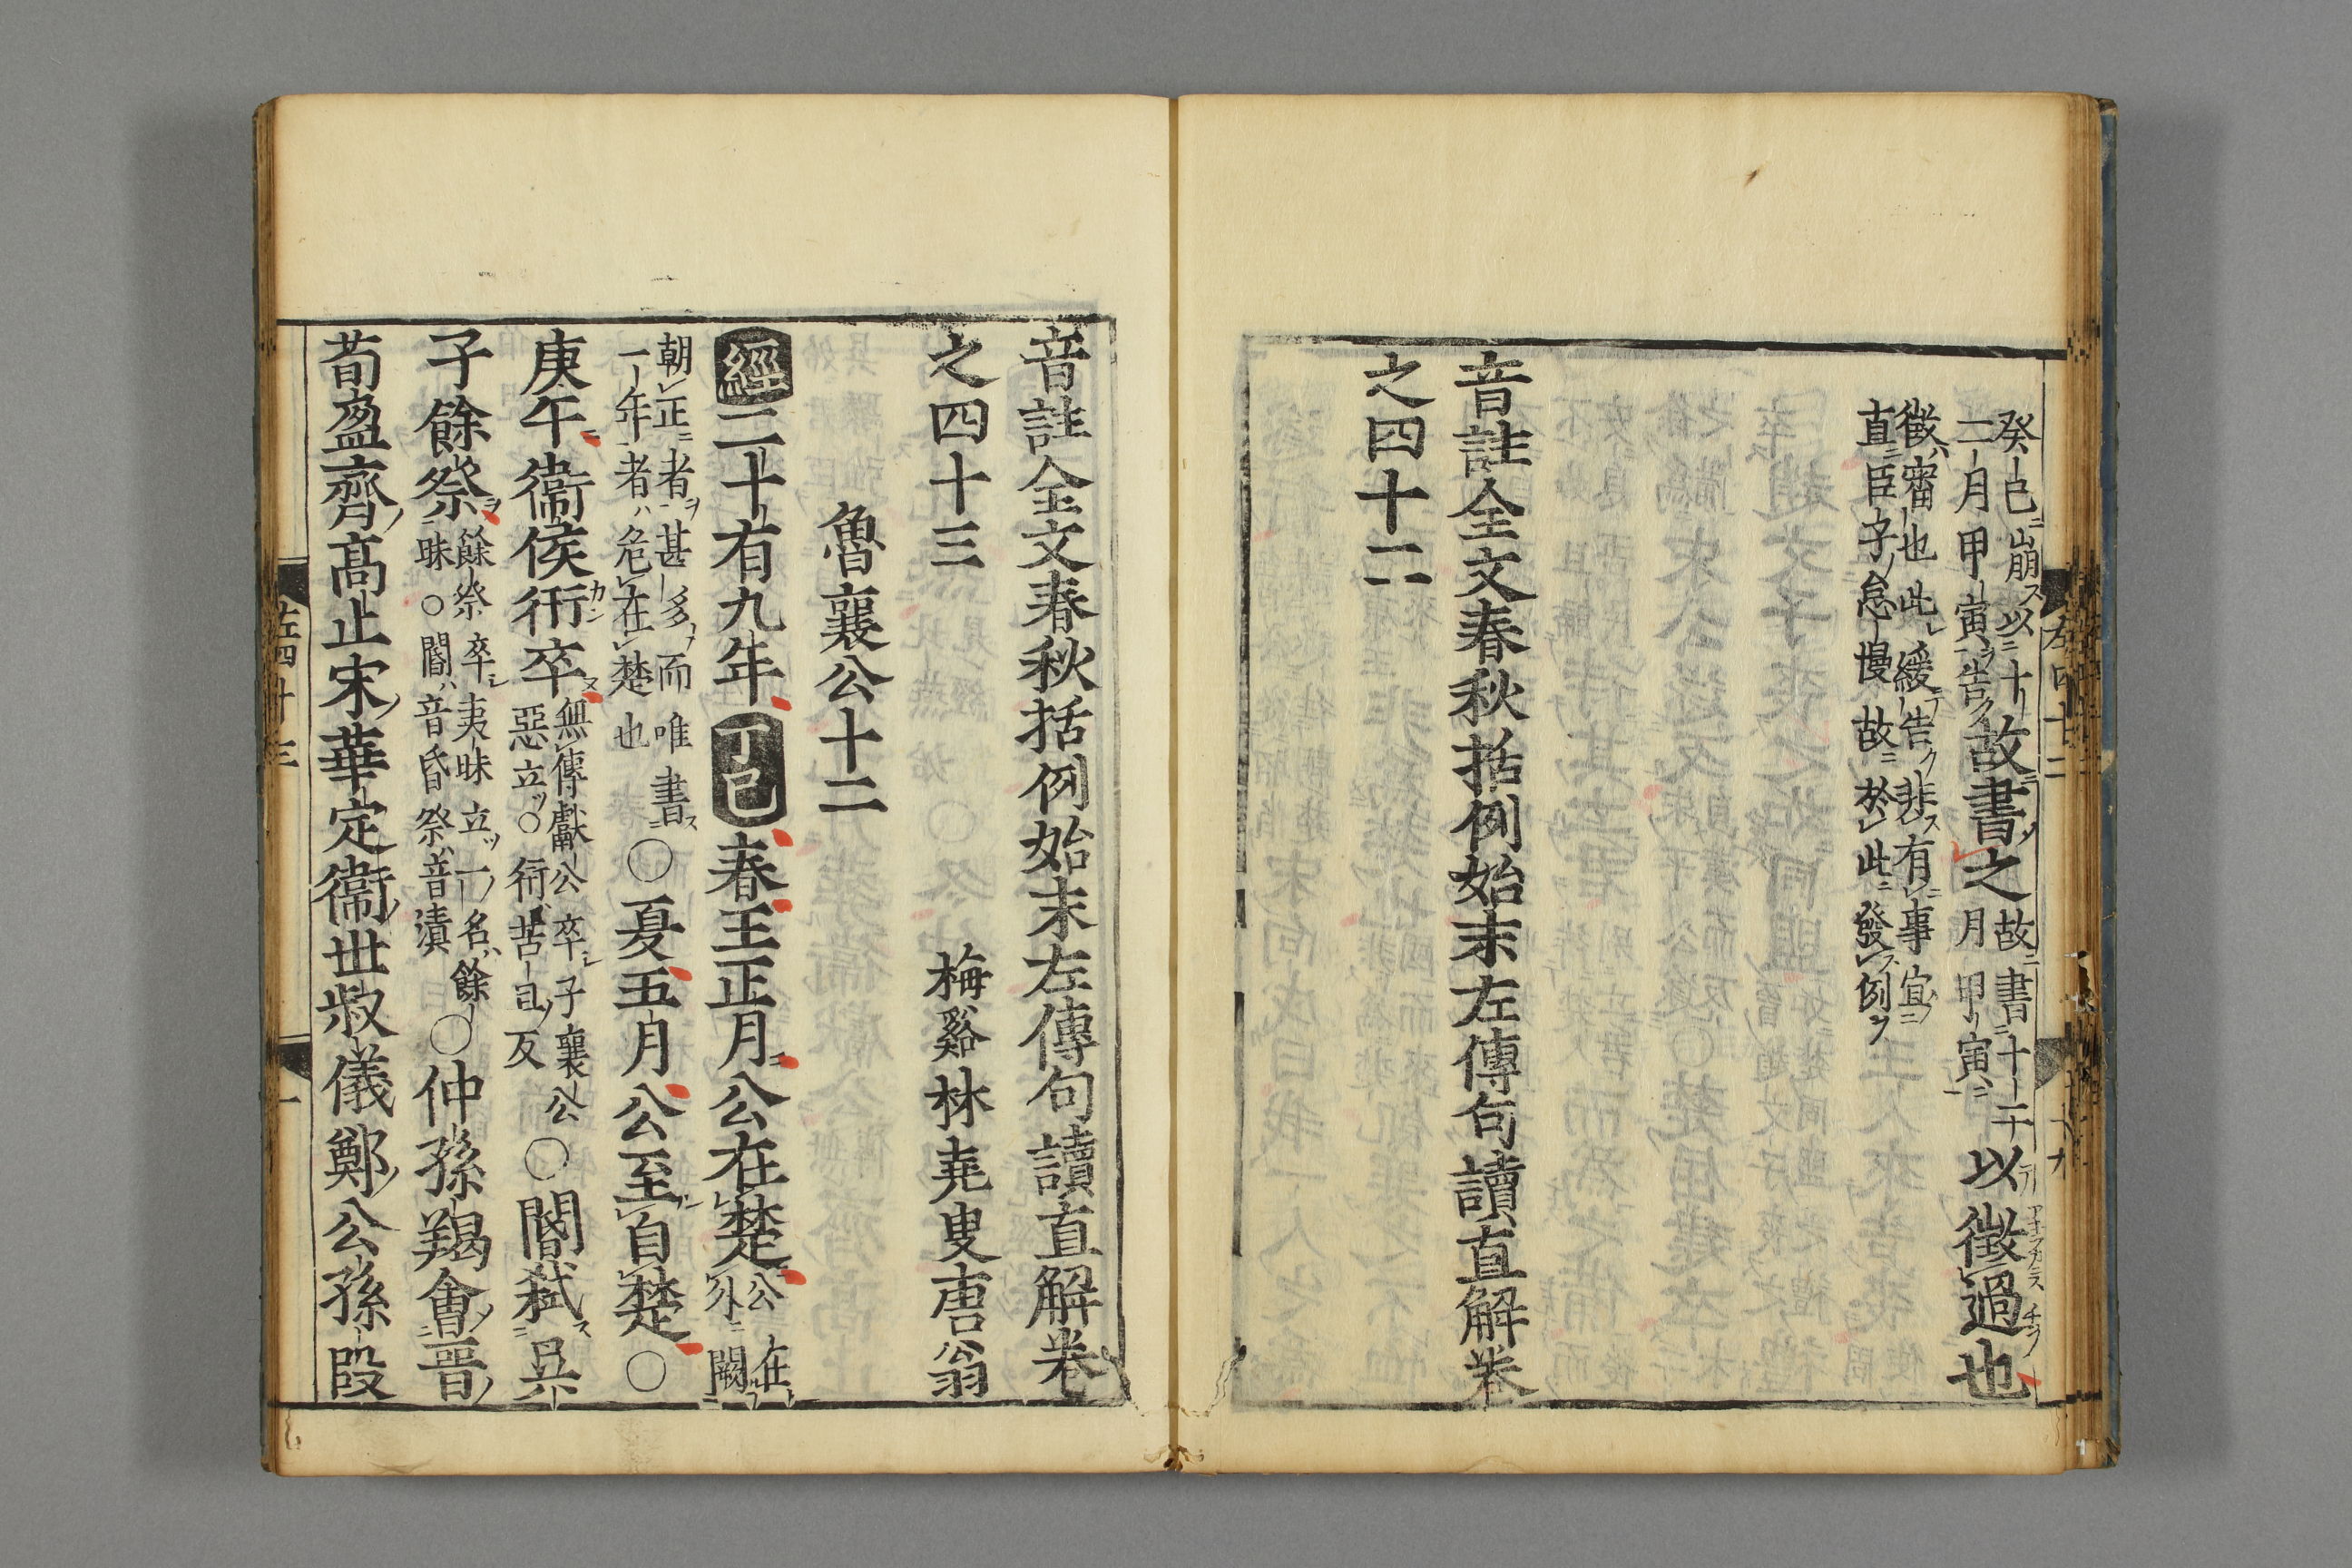 癸巳崩以十
二月甲寅告
故書之
故書十二
月甲寅
以徵過也
徵審也此緩告非有事宜
直臣子怠慢故於此發例
音註全文春秋括例始末左傳句讀直解卷
之四十二
音註全文春秋括例始末左傳句讀直解卷
之四十三
梅谿林堯叟唐翁
魯襄公十二
經二十有九年丁巳春王正月公在楚
公在
外闕
朝正者甚多而唯書
一年者危在楚也
○夏五月公至自楚○
庚午衞侯衎卒
無傳獻公卒子襄公
惡立○衎苦旦反
○閽弑吳
子餘祭
餘祭卒夷昧立一名餘
昧○閽音昏祭音漬
○仲孫羯會晉
荀盈齊高止宋華定衞世叔儀鄭公孫段
左四十三
一